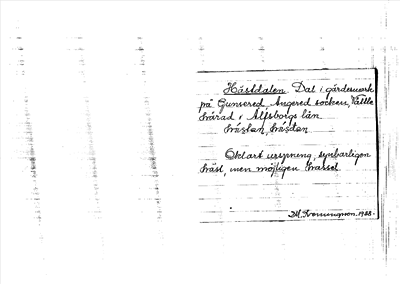 Hästdalen. Dal i gärdesmark
på Gunnered, Angered socken, Vättle
härad i Älfsborgs län.
hästen, hästen

Oklart ursprung, synbarligen
häst, men möjligen hassel.

1928.